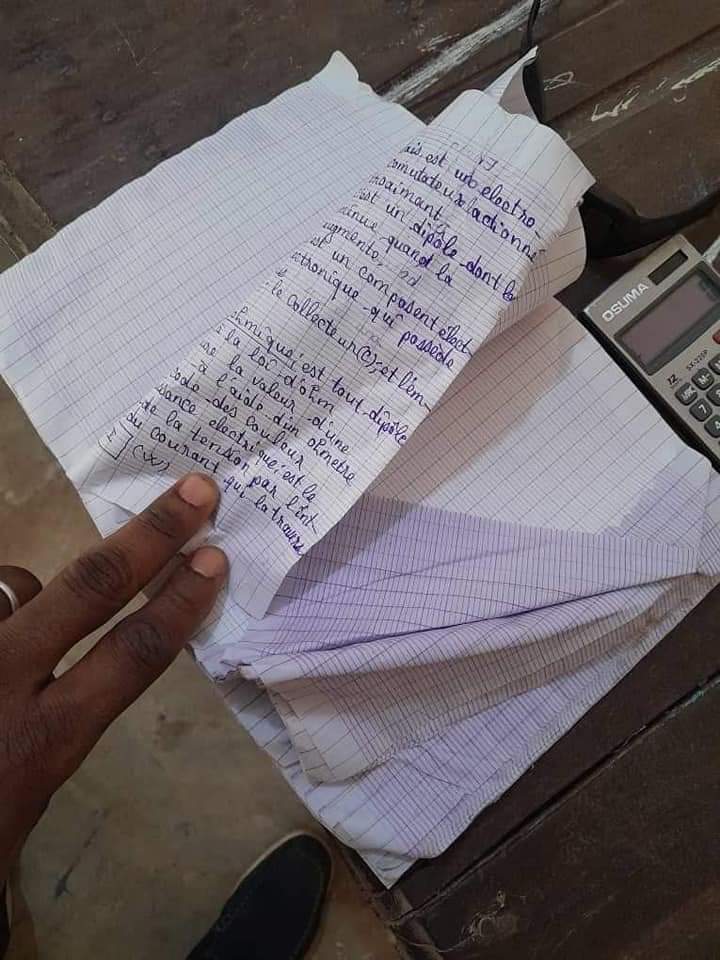 ais est un electro-
comutateur actionné
oaimant,
est un dipôle dont la
minue quand la
ugmente,
est un composent élect-
ctronique qui possède
le collecteur(C); et l'ém-
ohmique, est tout dipôle
e la loi d'ohm
ure la valeur d'une
à l'aide d'un ohmetre
ode des couleur
stance electrique, est le
de la tension par l'int
du courant qui la traverse
(W)
OSUMA
12
SX-220P
7